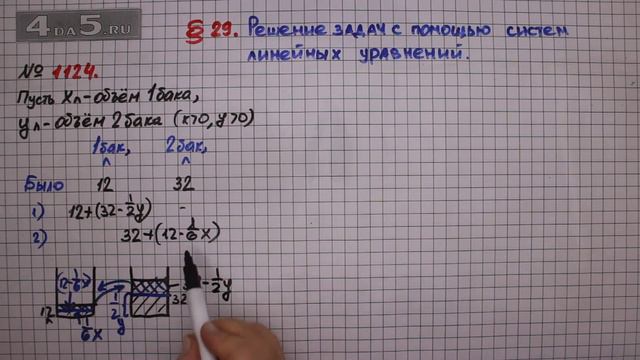 4DA5.RU
§ 29. Решение задач с помощью систем
линейных уравнений.
№ 1124.
Пусть x л - объём 1 бака,
y л - объём 2 бака (x>0, y>0)
1 бак, л 2 бак, л
Было 12 32
1) 12+(32-1/2y) -
2) 32+(12-1/6x)
(12-1/6x) -1/2y
12 л 1/2y 32
1/6x